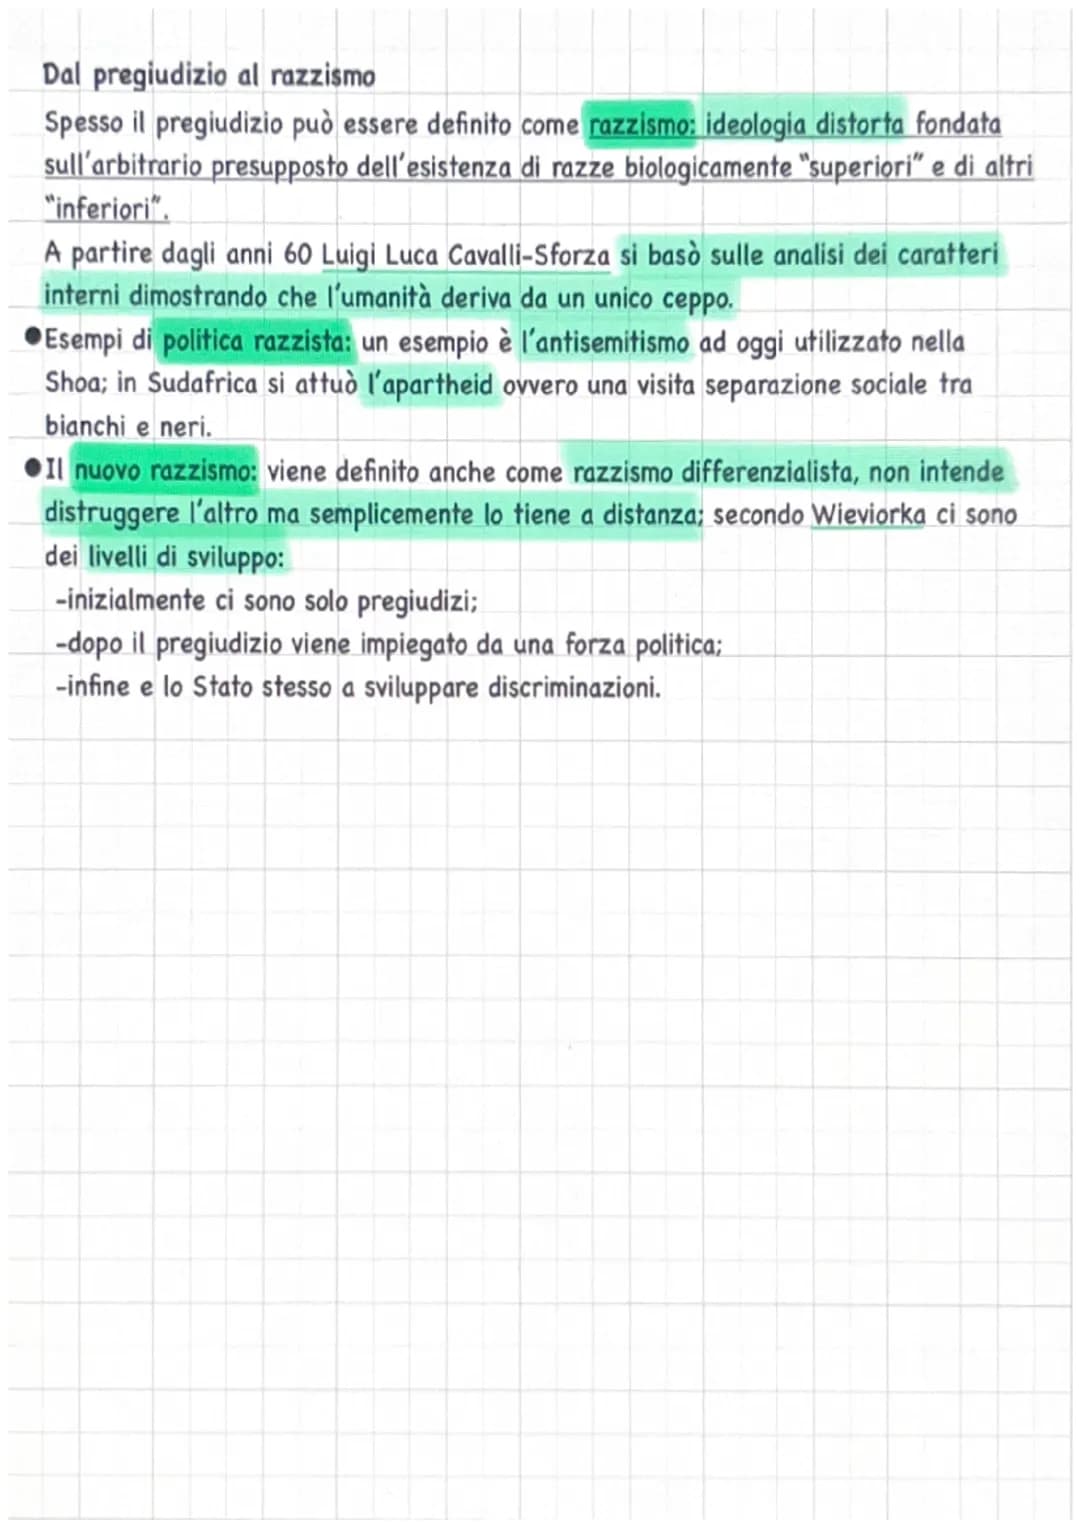 Dal pregiudizio al razzismo
Spesso il pregiudizio può essere definito come razzismo: ideologia distorta fondata
sull'arbitrario presupposto dell'esistenza di razze biologicamente "superiori" e di altri
"inferiori".
A partire dagli anni 60 Luigi Luca Cavalli-Sforza si basò sulle analisi dei caratteri
interni dimostrando che l'umanità deriva da un unico ceppo.
●Esempi di politica razzista: un esempio è l'antisemitismo ad oggi utilizzato nella
Shoa; in Sudafrica si attuò l'apartheid ovvero una visita separazione sociale tra
bianchi e neri.
●Il nuovo razzismo: viene definito anche come razzismo differenzialista, non intende
distruggere l'altro ma semplicemente lo tiene a distanza; secondo Wieviorka ci sono
dei livelli di sviluppo:
-inizialmente ci sono solo pregiudizi;
-dopo il pregiudizio viene impiegato da una forza politica;
-infine e lo Stato stesso a sviluppare discriminazioni.